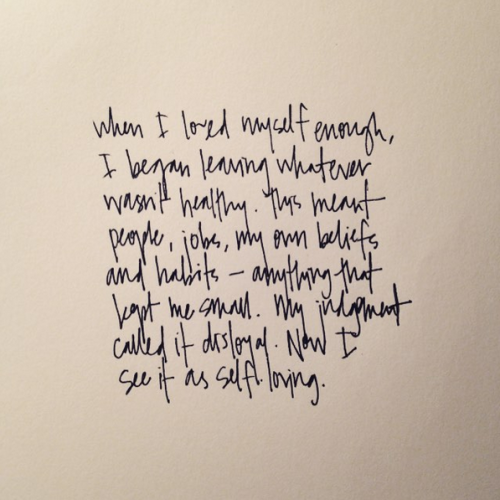 when I loved myself enough,
I began leaving whatever
wasn't healthy. This meant
people, jobs, my own beliefs
and habits – anything that
kept me small. My judgment
called it disloyal. Now I
see it as self-loving.